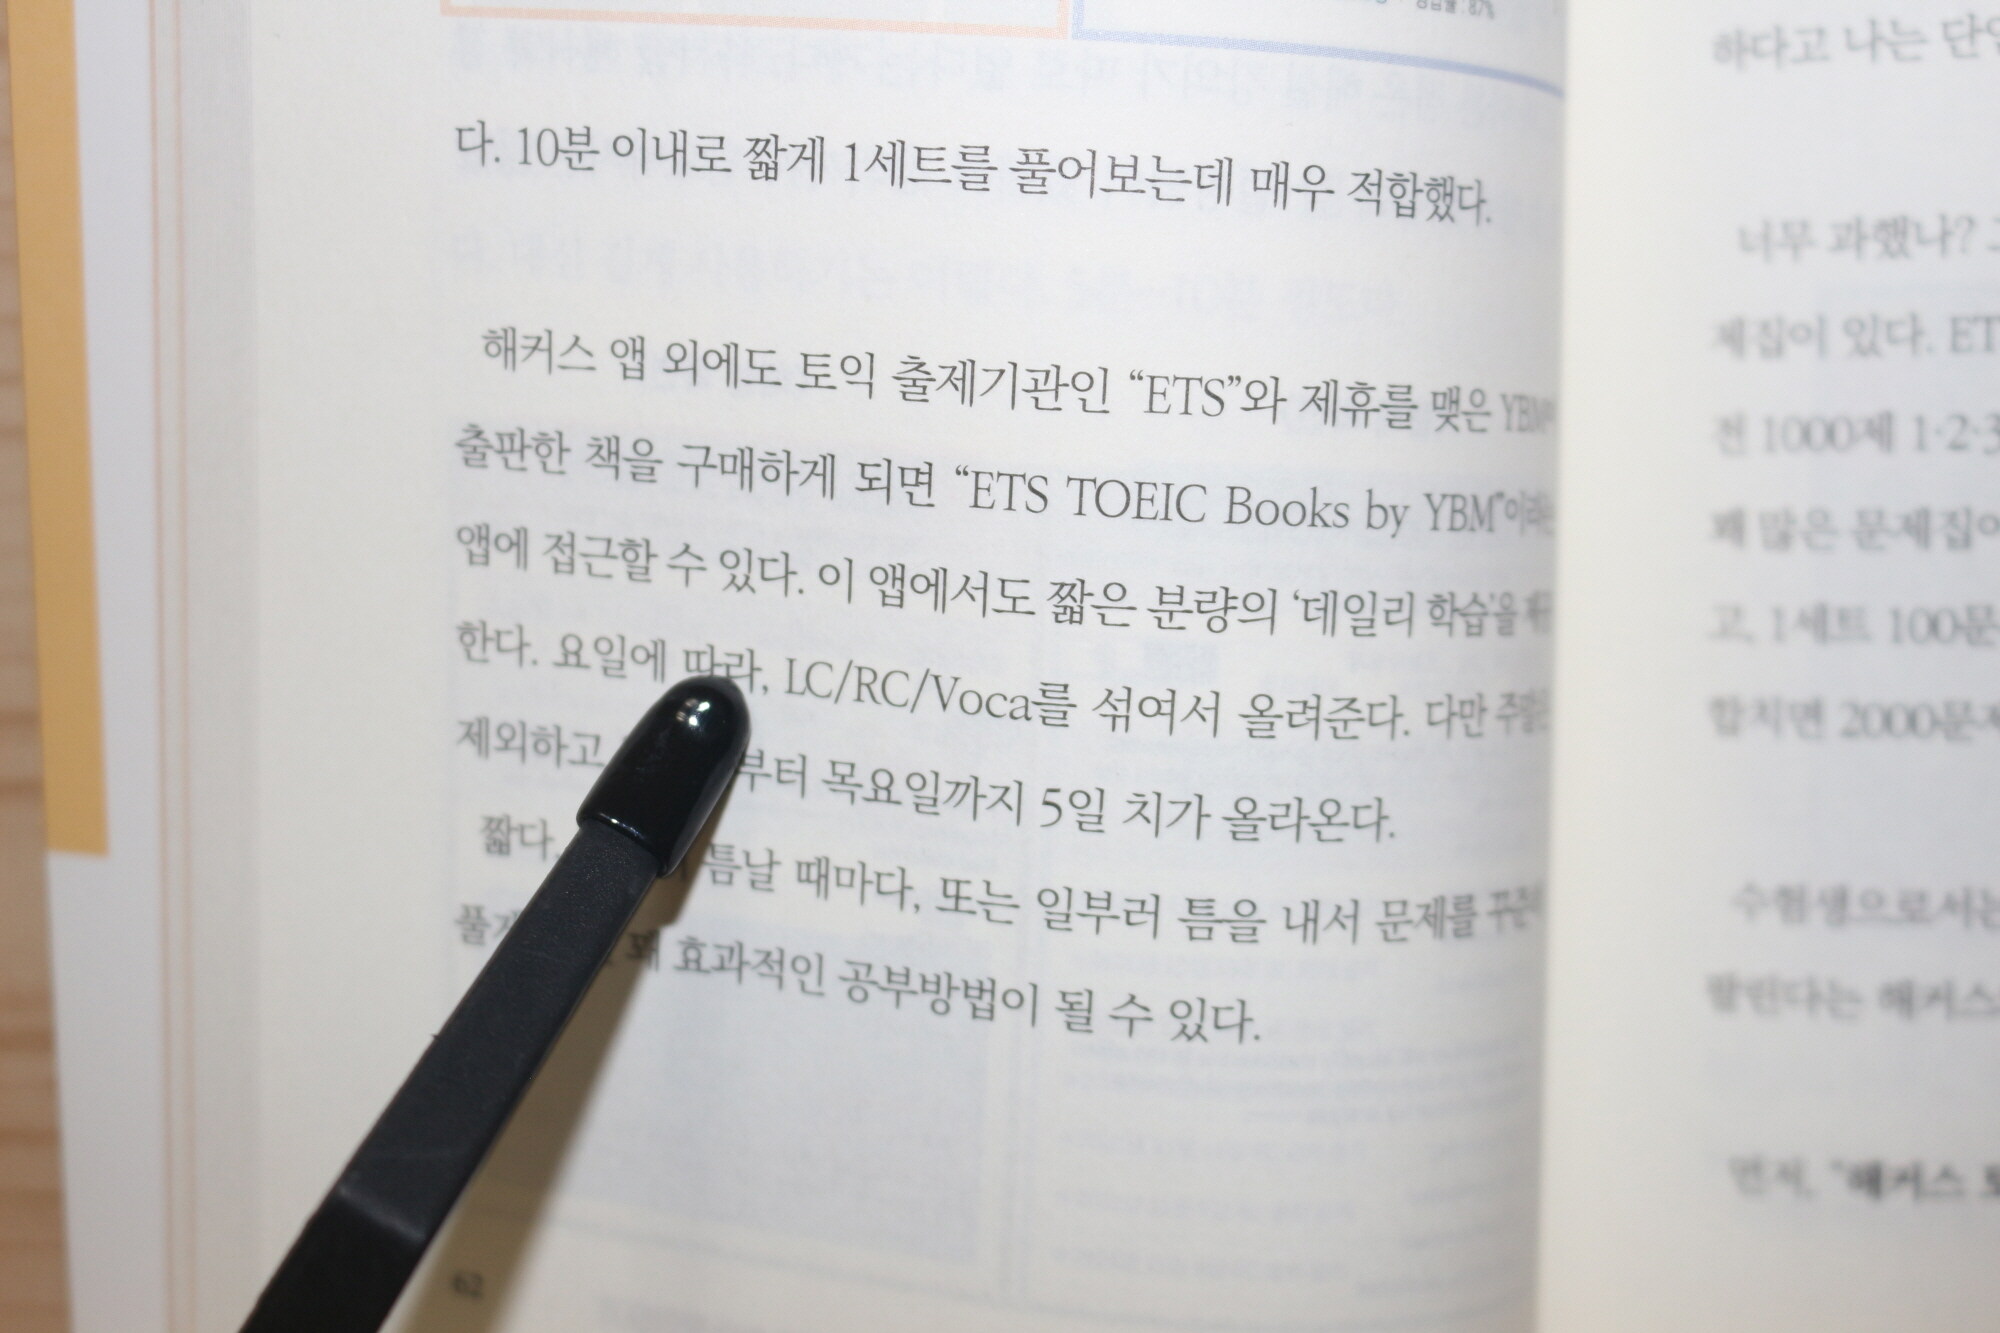 다. 10분 이내로 짧게 1세트를 풀어보는데 매우 적합했다.
해커스 앱 외에도 토익 출제기관인 “ETS”와 제휴를 맺은
출판한 책을 구매하게 되면 “ETS TOEIC Books by YBM”이라는
앱에 접근할 수 있다. 이 앱에서도 짧은 분량의 ‘데일리 학습’을
한다. 요일에 따라, LC/RC/Voca를 섞여서 올려준다. 다만
제외하고 부터 목요일까지 5일 치가 올라온다.
짧다. 틈날 때마다, 또는 일부러 틈을 내서 문제를
꽤 효과적인 공부방법이 될 수 있다.
62
하다고 나는
너무 과했나?
제집이 있다.
전 1000제 1·2·3
꽤 많은
고, 1세트
합치면
수험생으로서는
팔린다는
먼저, “해커스